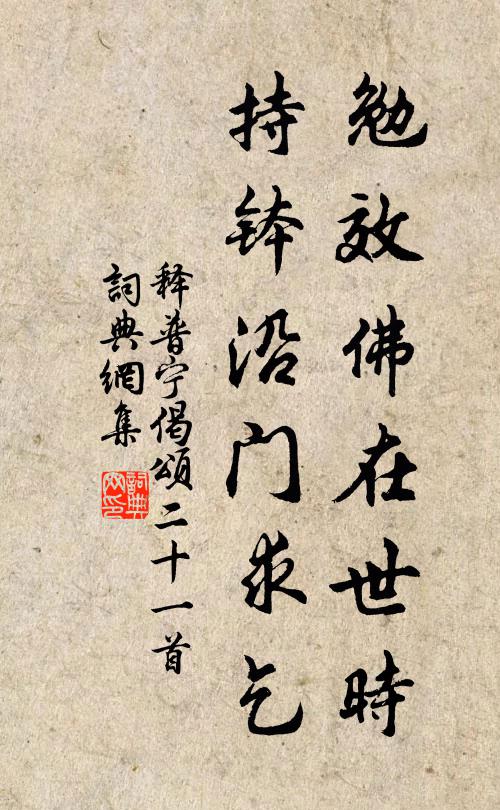 勉效佛在世時
持鉢沿门求乞
释普宁偈頌二十一首
詞典網集
詞典网印